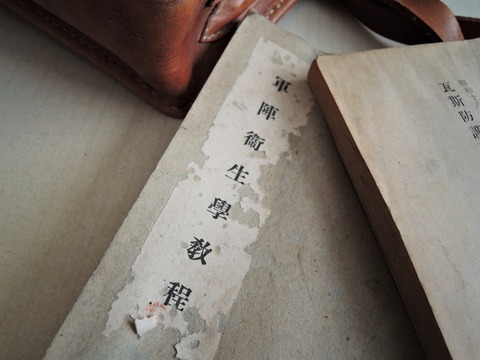 軍陣衞生學教程
昭和十八
瓦斯防